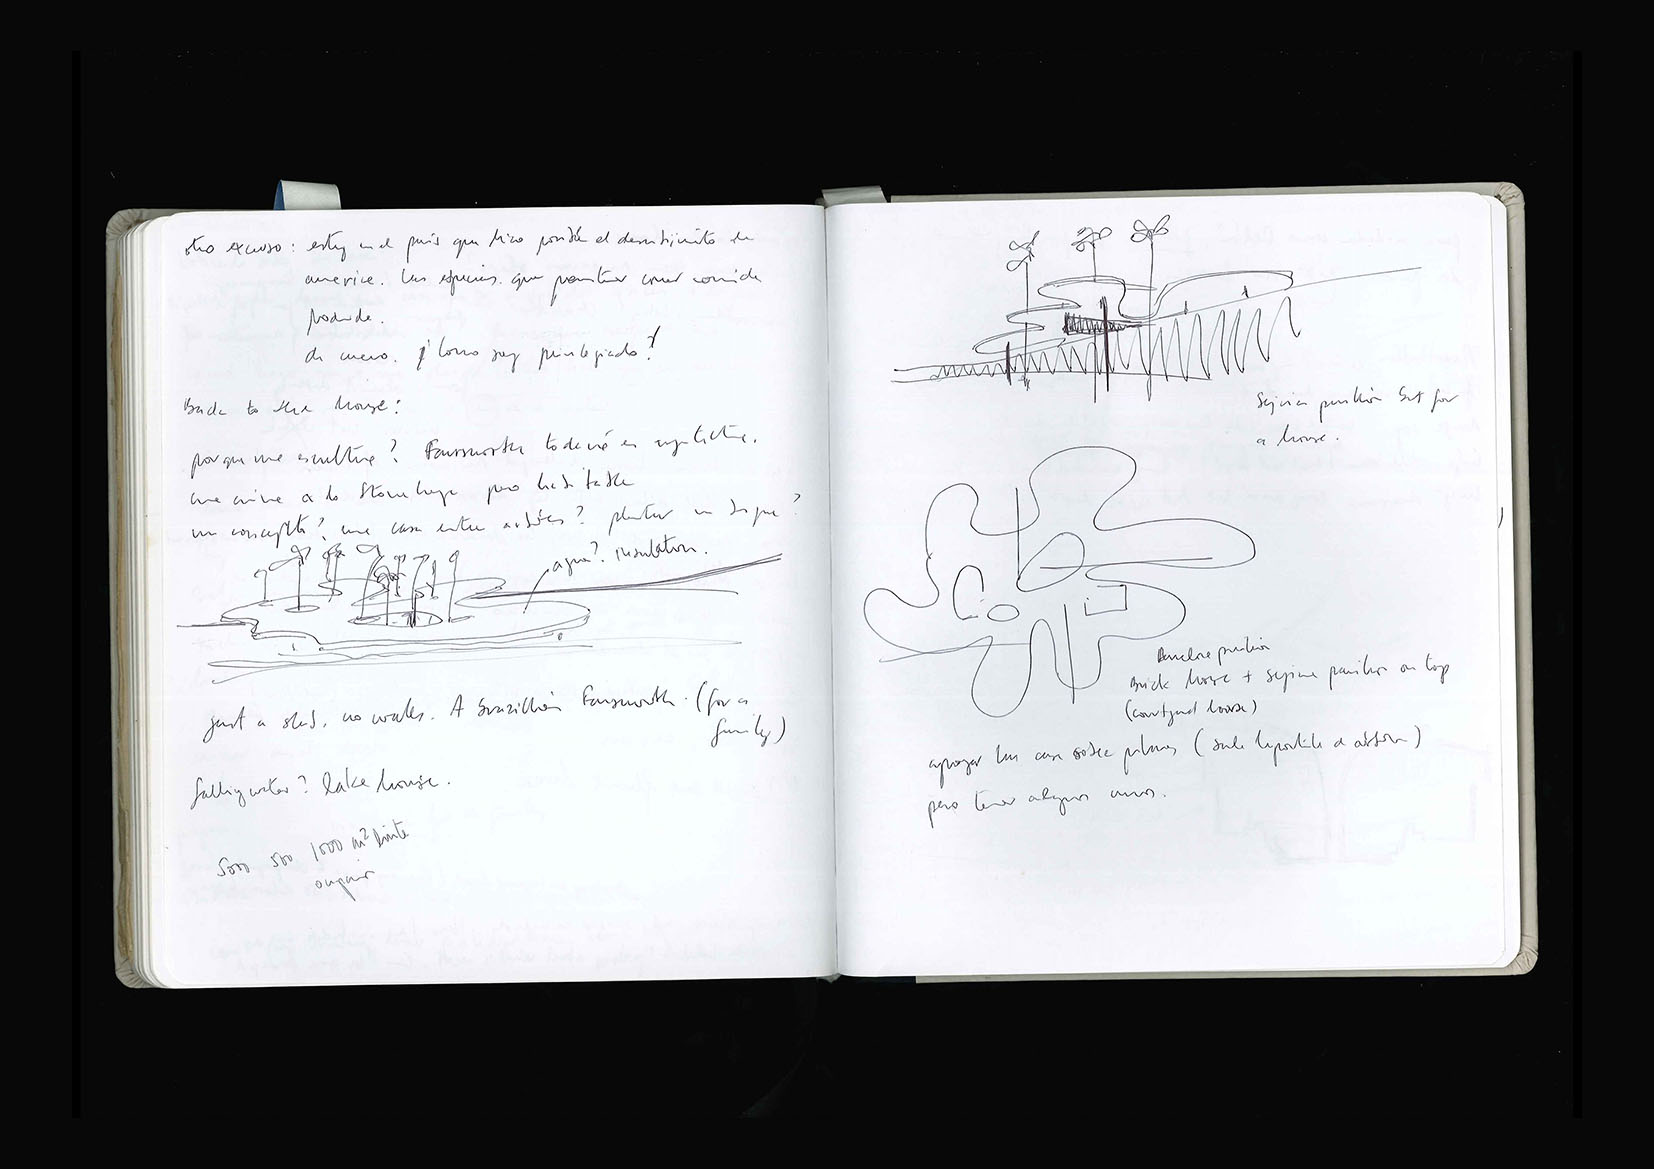 otro acuso: estoy en el país que hizo posible el descubrimiento de
america. las especies que permiten comer comida
podrida.
de nuevo. ¿Como soy privilegiado?
Back to the house:
porque una escultura? Farnsworth todavia es arquitectura.
una ruina a lo Stonehenge pero habitable
un concepto? una casa entre arboles? plantar un bosque?
agua? insulation.
just a slab, no walls. A Brazilian Farnsworth. (for a
family)
fallingwater? lake house.
5000 500 1000 m²
Sejima pavilion but for
a house.
Barcelona pavilion
Brick house + Sejima pavilion on top
(courtyard house)
apoyar la casa sobre pilares
pero tener algunos muros.